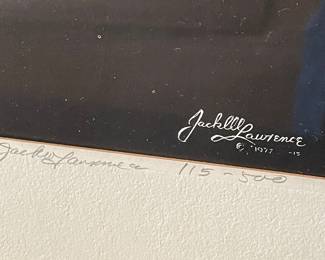 Jack W
Lawrence
© 1977 -15
Jack W Lawrence 115-500